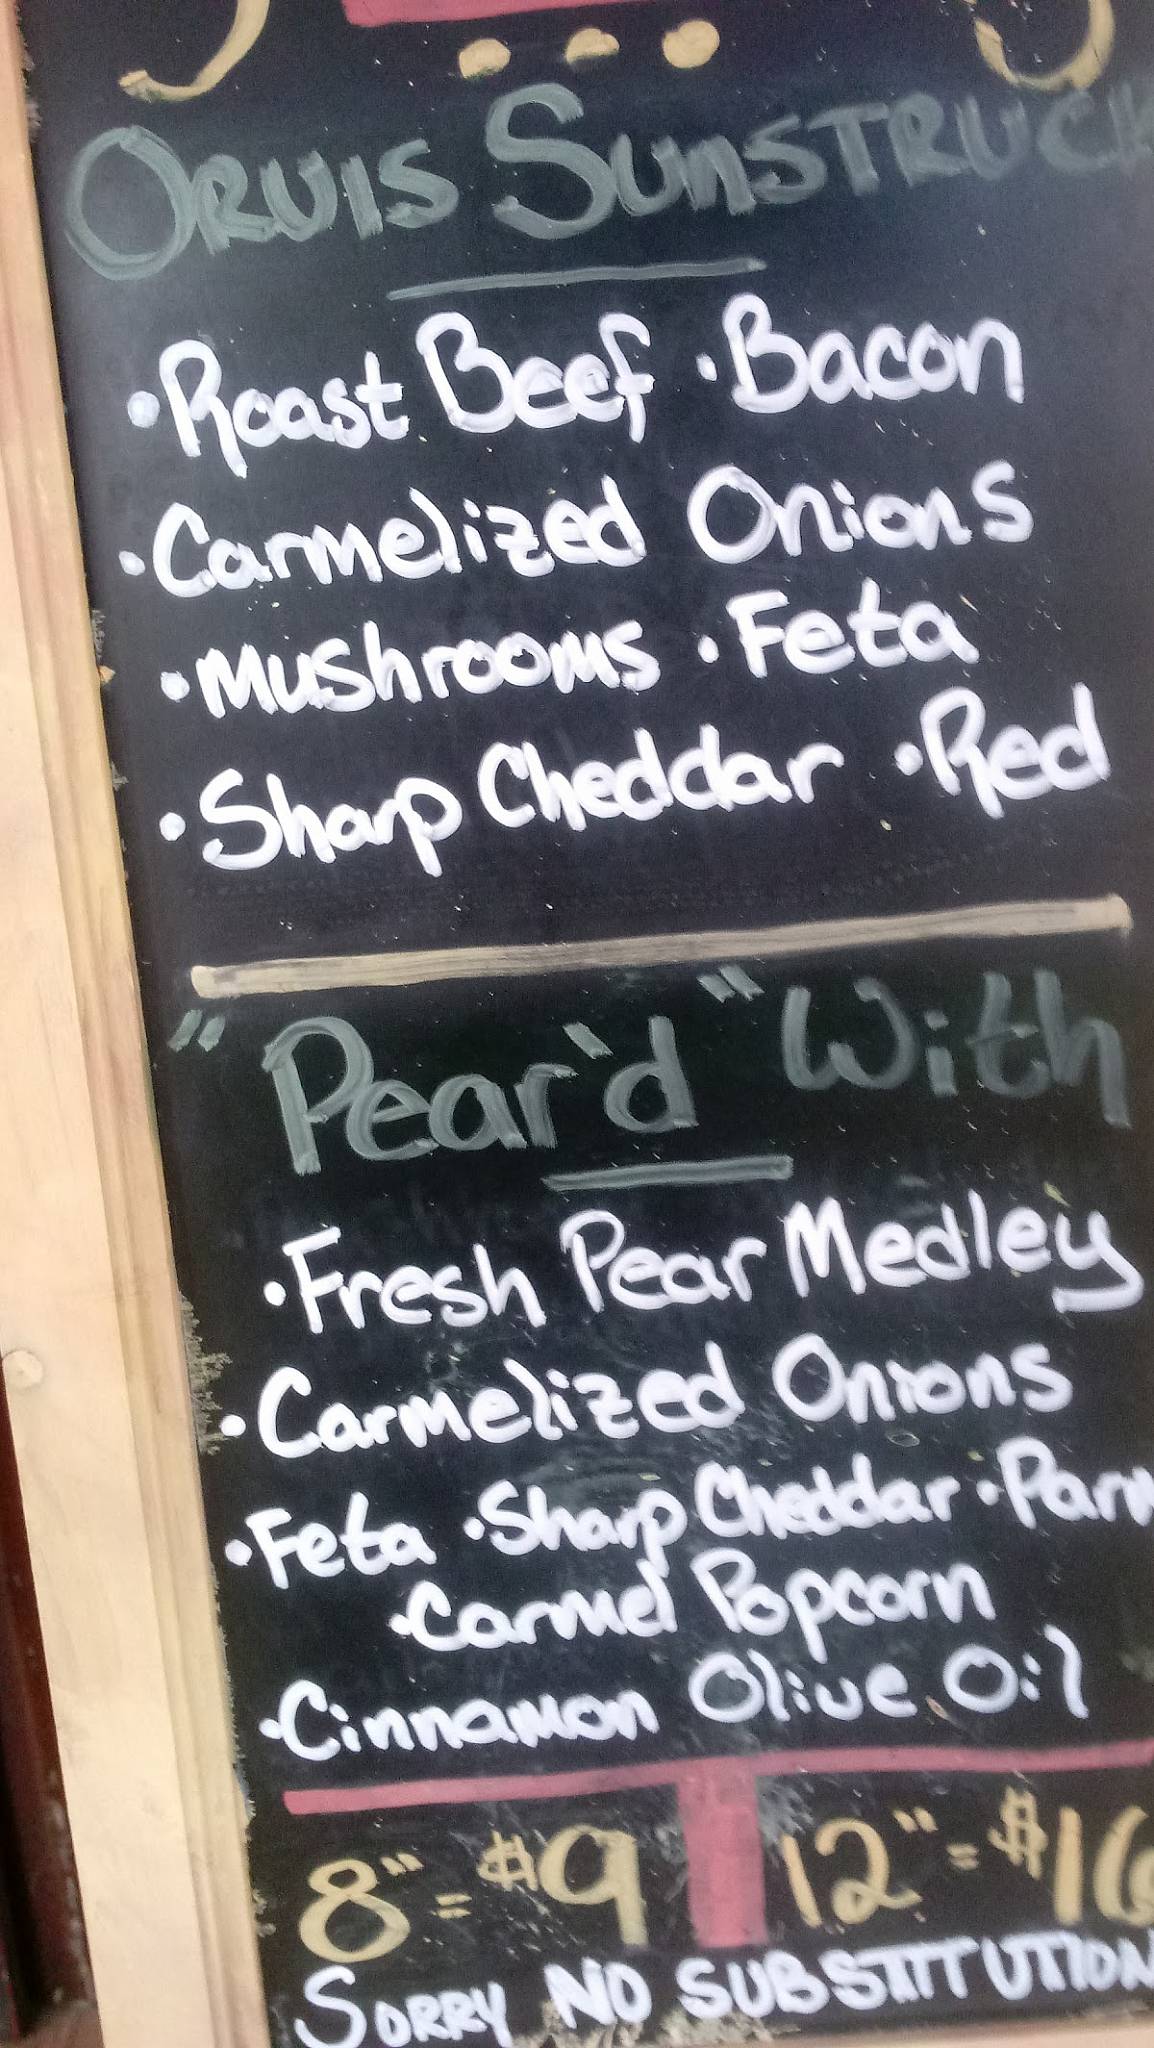 Orvis Sunstruck
• Roast Beef • Bacon
• Carmelized Onions
• Mushrooms • Feta
• Sharp Cheddar • Red
"Pear'd" With
• Fresh Pear Medley
• Carmelized Onions
• Feta • Sharp Cheddar • Parm
• Carmel Popcorn
• Cinnamon Olive Oil
8" = $9 12" = $16
Sorry NO SUBSTITUTION